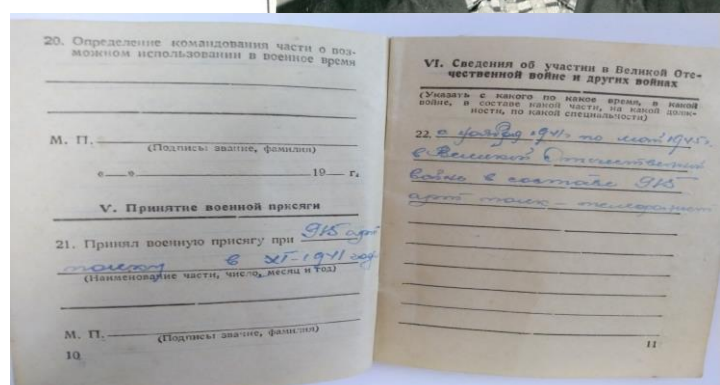 20. Определение командования части о воз-
можном использовании в военное время
М. П.
(Подпись: звание, фамилия)
«__»__19__ г.
V. Принятие военной присяги
21. Принял военную присягу при 915 арт
полку в XI-1941 год
(Наименование части, число, месяц и год)
М. П.
(Подпись: звание, фамилия)
10
VI. Сведения об участии в Великой Оте-
чественной войне и других войнах
(Указать с какого по какое время, в какой
войне, в составе какой части, на какой долж-
ности, по какой специальности)
22. с 1941г по май 1945г.
в Великой Отечественной
войне в составе 915
арт полк - телефонист
11